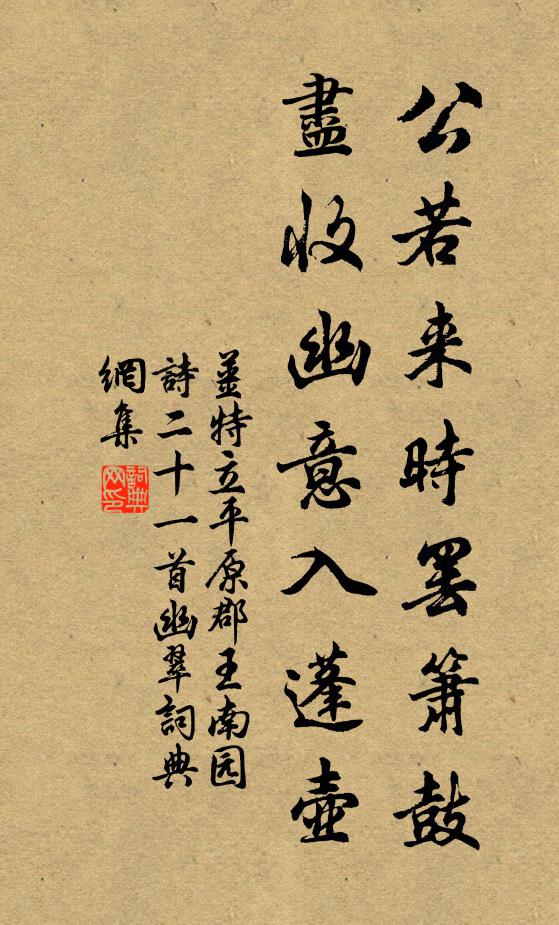 公若来時罢簫鼓
盡收幽意入蓬壺
薑特立平原郡王南园
詩二十一首幽翠詞典
網集
詞典
网印